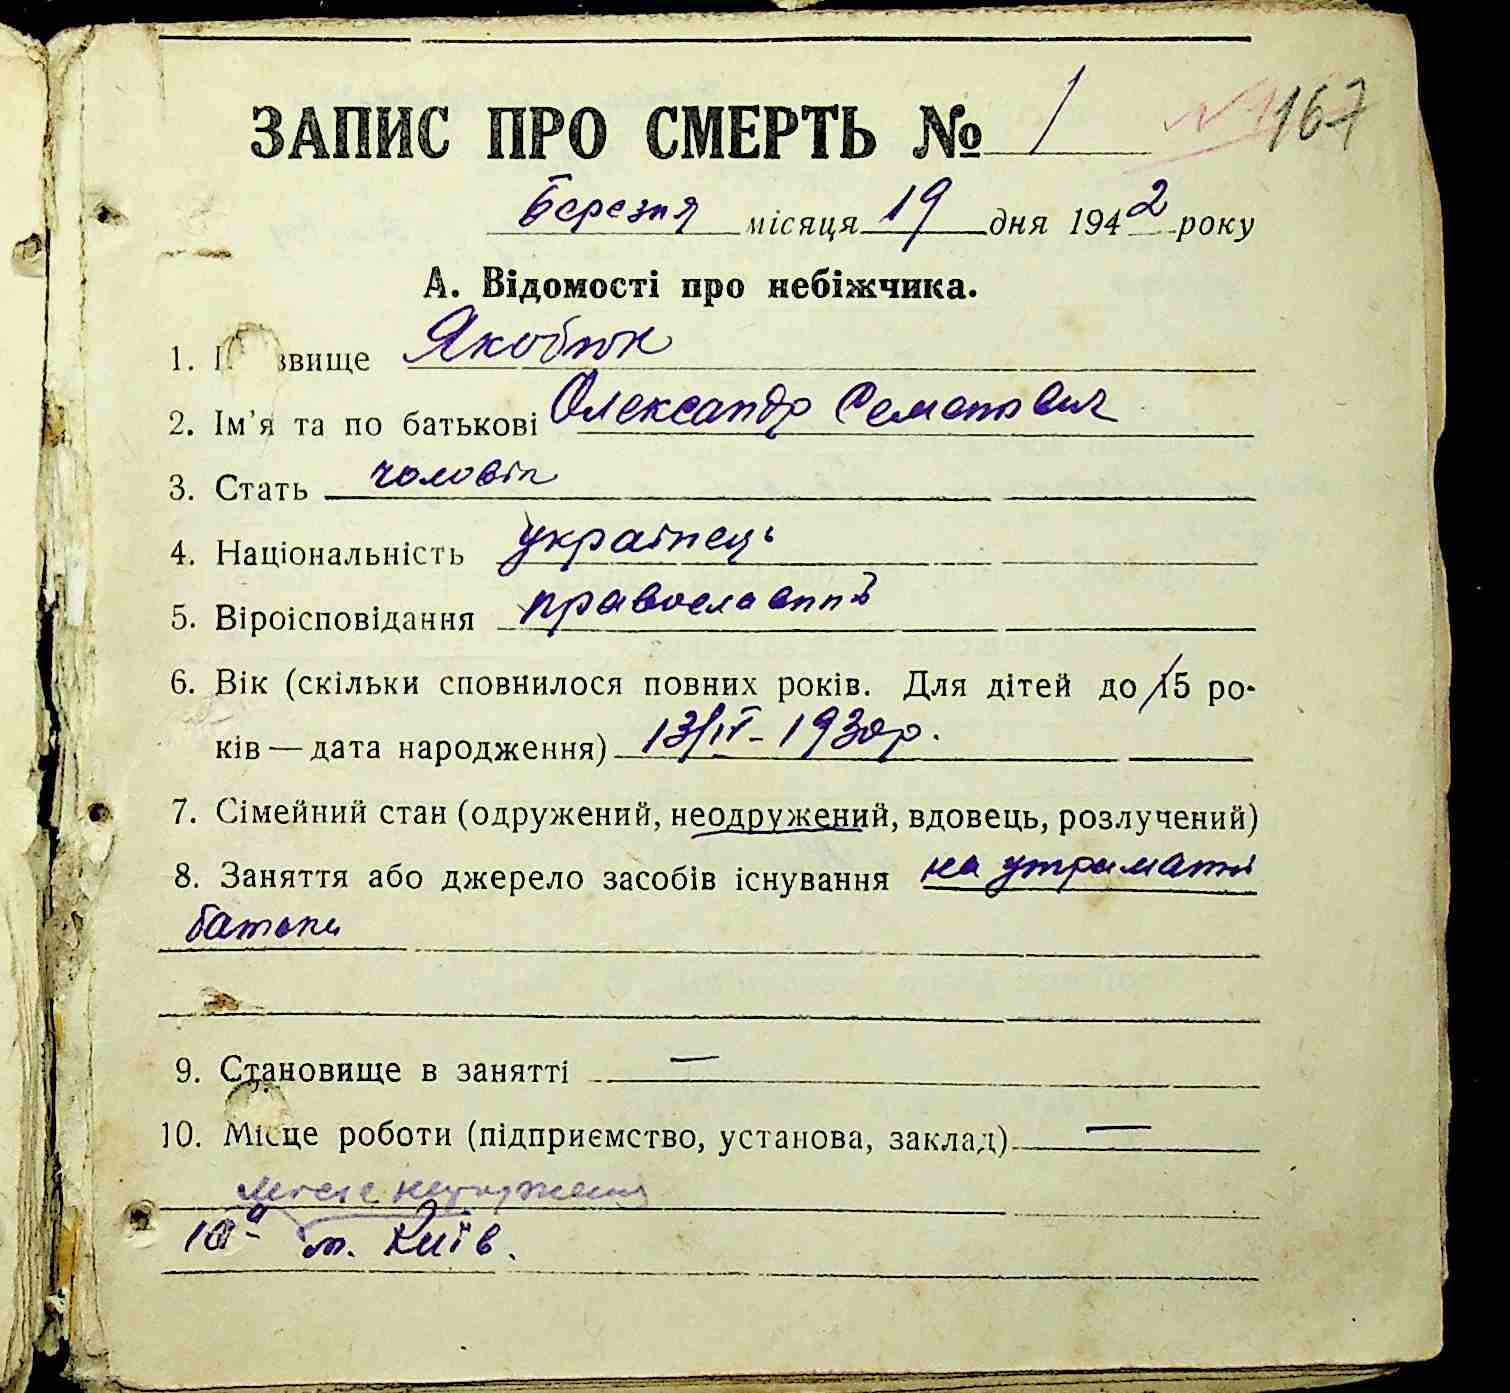 ЗАПИС ПРО СМЕРТЬ № 1 167
Березня місяця 19 дня 1942 року
А. Відомості про небіжчика.
1. звище Якобюк
2. Ім'я та по батькові Олександр Семенович
3. Стать чоловік
4. Національність українець
5. Віроісповідання православний
6. Вік (скільки сповнилося повних років. Для дітей до 15 ро-
ків — дата народження) 13/IV - 1930р.
7. Сімейний стан (одружений, неодружений, вдовець, розлучений)
8. Заняття або джерело засобів існування на утриманні
батьки
9. Становище в занятті —
10. Місце роботи (підприємство, установа, заклад) —
місце народження
10а - м. Київ.